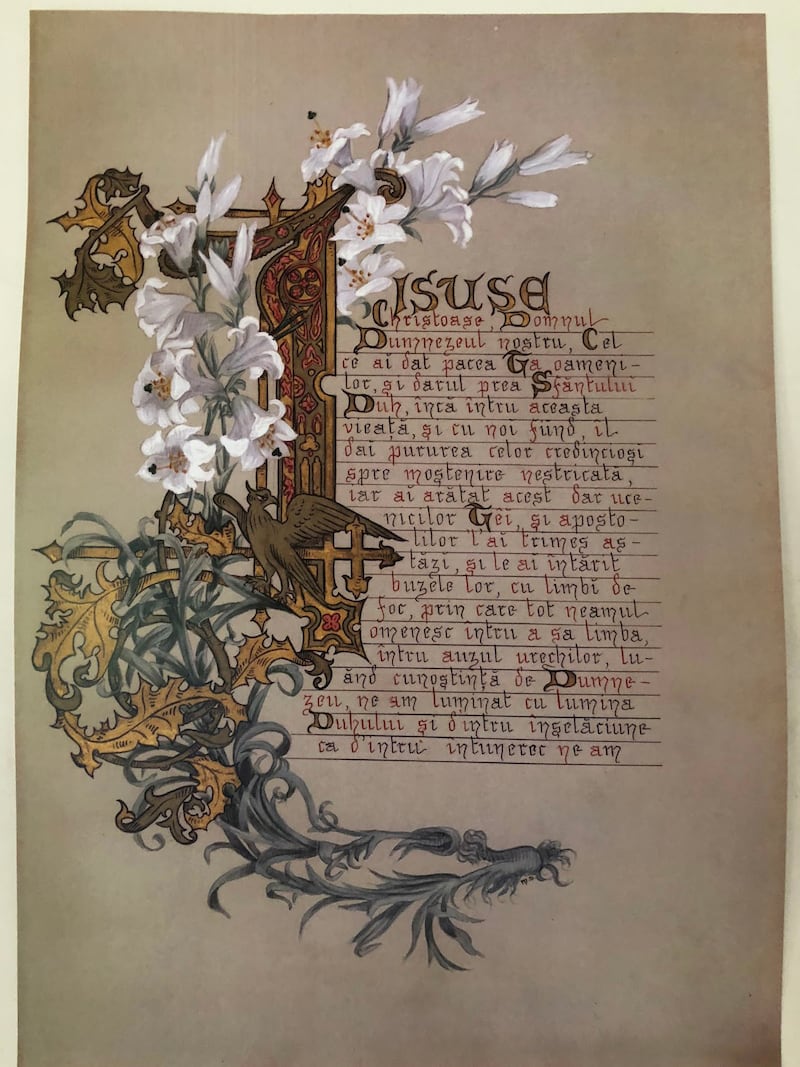 IISUSE
Christoase, Domnul
Dumnezeul nostru, Cel
ce ai dat pacea Ta oameni-
lor, și darul prea Sfântului
Duh, încă întru aceasta
vieață, și cu noi fiind, îl
dai pururea celor credincioși
spre moștenire nestricată,
iar ai arătat acest dar uce-
nicilor Tĕi, și aposto-
lilor l'ai trimes as-
tăzi, și le ai întărit
buzele lor, cu limbĭ de
foc, prin care tot neamul
omenesc întru a sa limba,
întru auzul urechilor, lu-
ând cunoștință de Dumne-
zeu, ne am luminat cu lumina
Duhului și d'intru înșelăciune
ca d'intru intunerec ne am